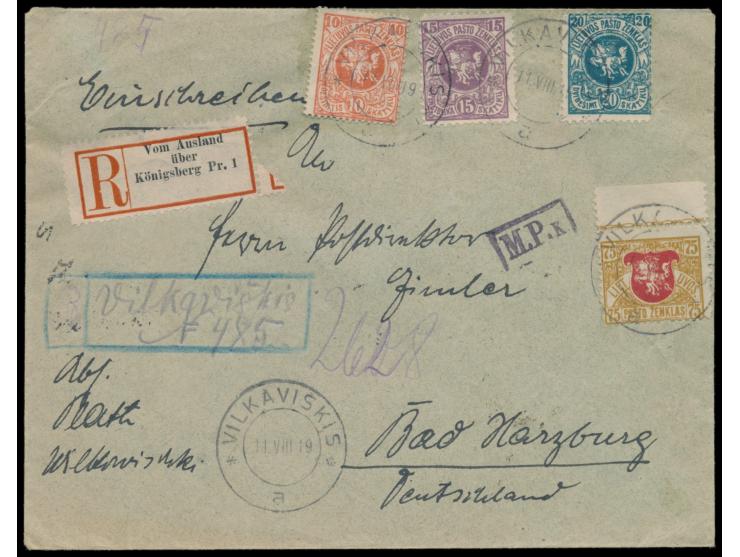 485
10 LIETUVOS PASTO ŽENKLAS 10
15 LIETUVOS PASTO ŽENKLAS 15
20 LIETUVOS PASTO ŽENKLAS 20
15 SKATIKŲ
DVIDEŠIMTS 20 SKATIKŲ
VILKAVISKIS 11.VIII 19 a
Einschreiben
R
Vom Ausland
über
Königsberg Pr. 1
An
Herrn Postdirektor
Zimler
M.P.x
75 75
LIETUVOS
75 PASTO ŽENKLAS 75
R Vilkaviškis
№ 485
2628
Abs.
Rath
Wilkowischki.
* VILKAVISKIS *
11.VIII 19
a
Bad Harzburg
Deutschland